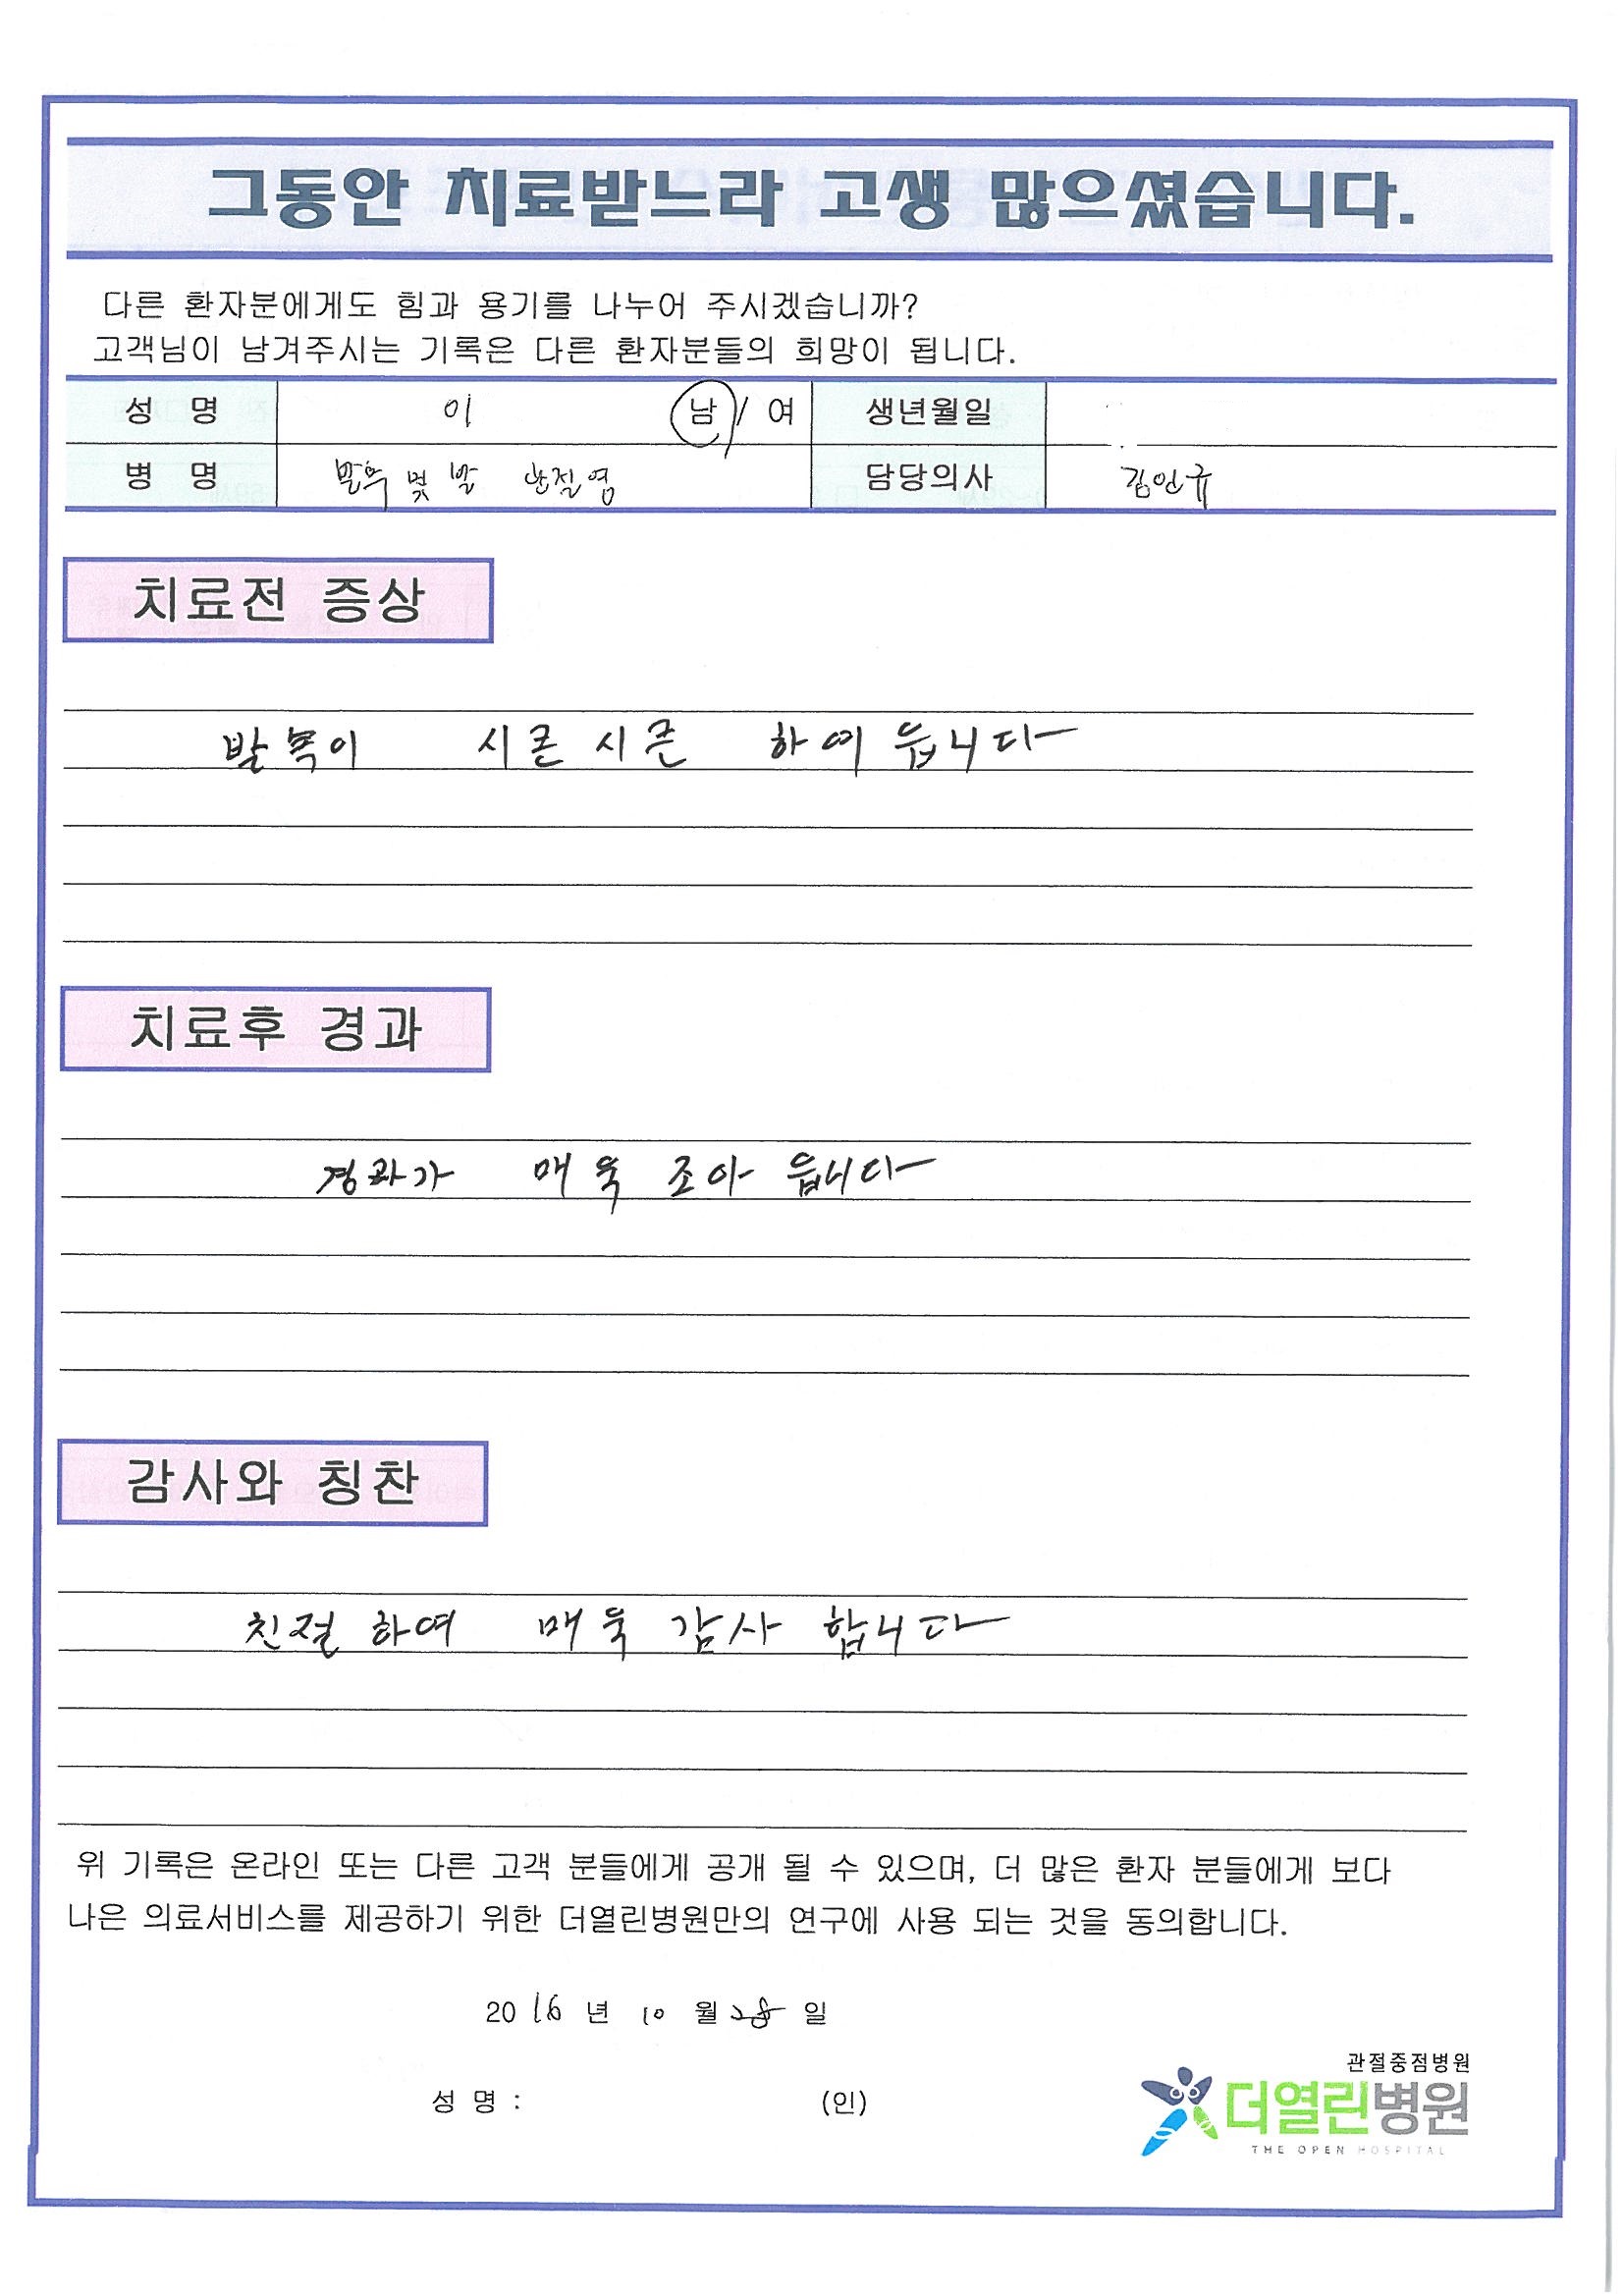 그동안 치료받느라 고생 많으셨습니다.
다른 환자분에게도 힘과 용기를 나누어 주시겠습니까?
고객님이 남겨주시는 기록은 다른 환자분들의 희망이 됩니다.
성 명 이 남 / 여 생년월일
병 명 발목 및 발 관절염 담당의사 김인규
치료전 증상
발목이 시큰시큰 하여 읍니다
치료후 경과
경과가 매욱 조아 읍니다
감사와 칭찬
친절하여 매욱 감사 합니다
위 기록은 온라인 또는 다른 고객 분들에게 공개 될 수 있으며, 더 많은 환자 분들에게 보다
나은 의료서비스를 제공하기 위한 더열린병원만의 연구에 사용 되는 것을 동의합니다.
2016 년 10 월 28 일
성 명 : (인)
관절중점병원
더열린병원
THE OPEN HOSPITAL